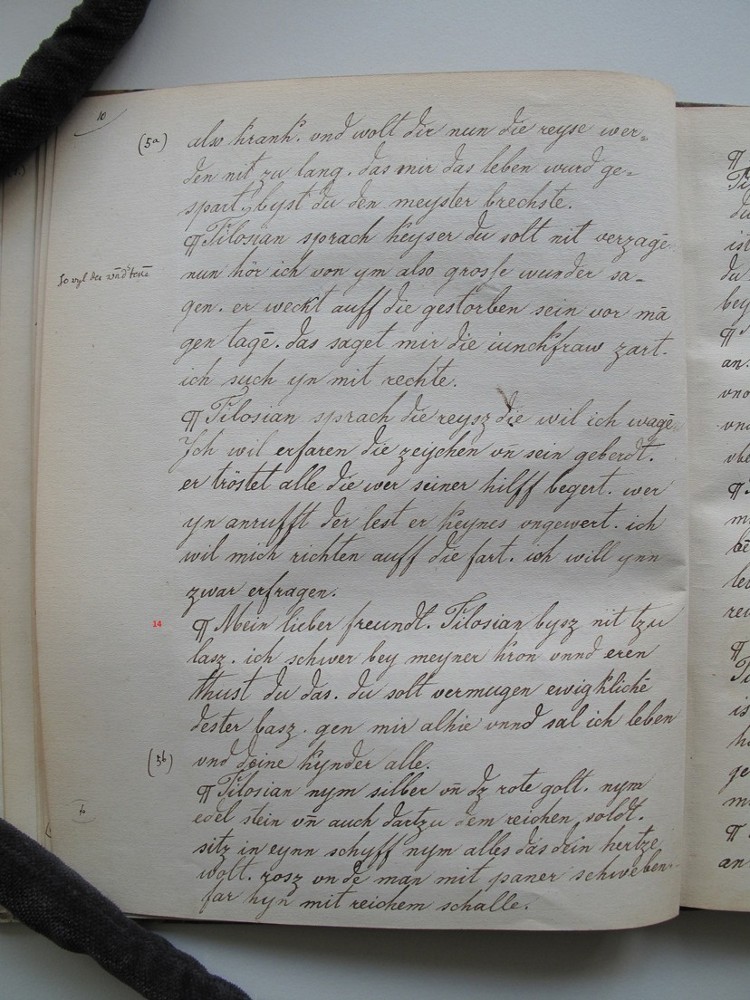 10
(5a) also kranck. vnd wolt dir nun die reyse wer=
den nit zu lang. das mir das leben wurd ge=
spart, byst du den meyster brechste.
¶ Tilosian sprach keyser du solt nit verzagē
nun hör ich von ym also grosse wunder sa=
gen. er weckt auff die gestorben sein vor mā
gen tagē. das saget mir die iunckfraw zart.
ich such yn mit rechte.
¶ Tilosian sprach die reysz die wil ich wagē
Ich wil erfaren die zeychen vn̄ sein geberdt.
er tröstet alle die wer seiner hilff begert. wer
yn anrufft der lest er keynes ongewert. ich
wil mich richten auff die fart. ich will ynn
zwar erfragen.
14 ¶ Mein lieber freundt. Tilosian bysz nit tzu
lasz. ich schwer bey meyner kron vnnd eren
thust du das. du solt vermugen ewigklichē
dester basz. gen mir alhie vnnd sal ich leben
(5b) vnd deine kynder alle.
¶ Tilosian nym silber vn̄ dz rote golt. nym
edel stein vn̄ auch dartzu dem reichen soldt.
sitz in eynn schyff nym alles das dein hertze
wolt. rosz vnde man mit paner schweben.
far hyn mit reichem schalle.